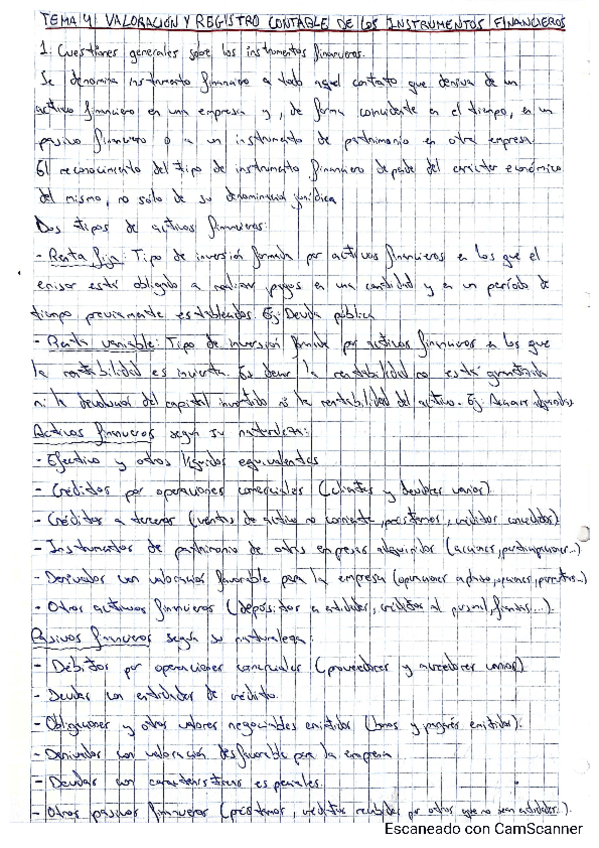 TEMA 4 VALORACIÓN Y REGISTRO CONTABLE DE LOS INSTRUMENTOS FINANCIEROS
1. Cuestiones generales sobre los instrumentos financieros.
Se denomina instrumento financiero a todo aquel contrato que deriva de un
activo financiero en una empresa y, de forma coincidente en el tiempo, en un
pasivo financiero o a un instrumento de patrimonio en otra empresa
El reconocimiento del tipo de instrumento financiero depende del carácter económico
del mismo, no solo de su denominación jurídica
Dos tipos de activos financieros:
- Renta fija: Tipo de inversión formada por activos financieros en los que el
emisor está obligado a realizar pagos en una cantidad y en un período de
tiempo previamente establecidos Ej: Deuda pública
- Renta variable: Tipo de inversión formada por activos financieros en los que
la rentabilidad es incierta. Es decir la rentabilidad no está garantizada
ni la devolución del capital invertido ni la rentabilidad del activo. Ej: Acciones
Activos financieros según su naturaleza:
- Efectivo y otros líquidos equivalentes
- Créditos por operaciones comerciales (clientes y deudores varios)
- Créditos a terceros (ventas de activo no corriente, préstamos, créditos concedidos)
- Instrumentos de patrimonio de otras empresas adquiridos (acciones, participaciones...)
- Derivados con valoración favorable para la empresa (operaciones a plazo, opciones, ...)
- Otros activos financieros (depósitos a entidades, créditos al personal, fianzas...).
Pasivos financieros según su naturaleza:
- Débitos por operaciones comerciales (proveedores y acreedores varios)
- Deudas con entidades de crédito.
- Obligaciones y otros valores negociables emitidos (bonos y pagarés emitidos).
- Derivados con valoración desfavorable para la empresa
- Deudas con características especiales.
- Otros pasivos financieros (préstamos, créditos recibidos por otros que no sean entidades..).
Escaneado con CamScanner